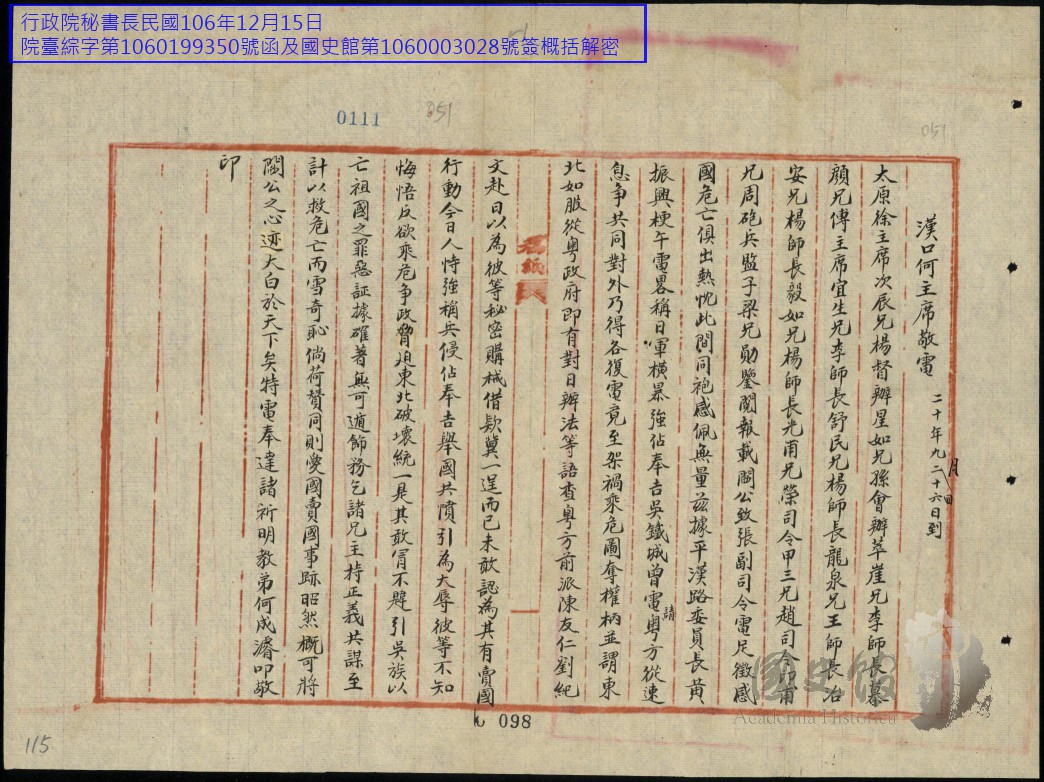 行政院秘書長民國106年12月15日
院臺綜字第1060199350號函及國史館第1060003028號簽概括解密
0111
051
051
漢口何主席敬電
二十年九月二十六日到
太原徐主席次辰兄楊督辦星如兄孫會辦萃崖兄李師長慕
顏兄傅主席宜生兄李師長舒民兄楊師長龍泉兄王師長治
安兄楊師長毅如兄楊師長光甫兄榮司令甲三兄趙司令印甫
兄周砲兵監子梁兄勛鑒閱報載閻公致張副司令電足徵感
國危亡俱出熱忱此間同袍感佩無量茲據平漢路委員長黃
振興梗午電畧稱日軍橫暴強佔奉吉吳鐵城曾電請粵方從速
息爭共同對外乃得各復電竟至架禍乘危圖奪權柄並謂東
北如服從粵政府即有對日辦法等語查粵方前派陳友仁劉紀
文赴日以為彼等秘密購械借款冀一逞而已未敢認為其有賣國
行動今日人恃強稱兵侵佔奉吉舉國共憤引為大辱彼等不知
悔悟反欲乘危爭政脅迫東北破壞統一是其敢冒不韙引吳族以
亡祖國之罪惡証據確著無可遁飾務乞諸兄主持正義共謀至
計以救危亡而雪奇恥倘荷贊同則愛國賣國事跡昭然概可將
閻公之心迹大白於天下矣特電奉達諸祈明教弟何成濬叩敬
印
098
115
國史館
Academia Historica